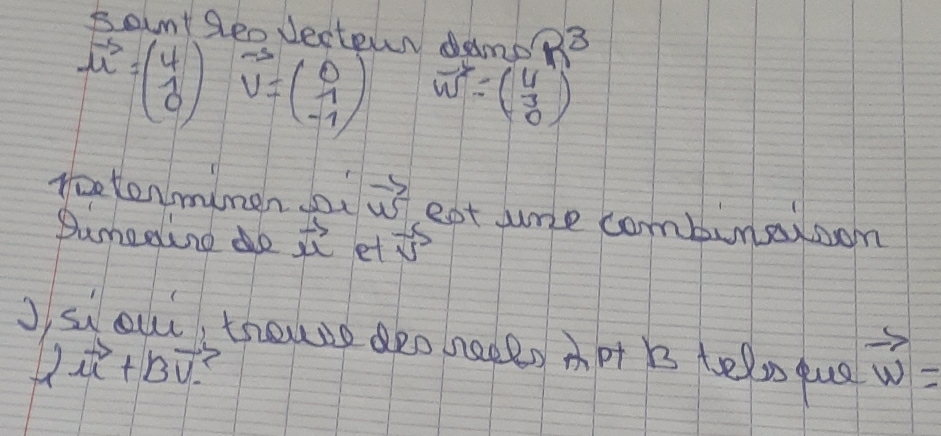 Soint des Vecteur dans R³
u⃗ = (4 1 0) v⃗ = (0 1 -1) w⃗ = (4 3 0)
Determiner si w⃗ est une combinaison
linéaire de u⃗ et v⃗
2, si oui, trouve des réels λ et B tels que w⃗ =
λu⃗ + Bv⃗.